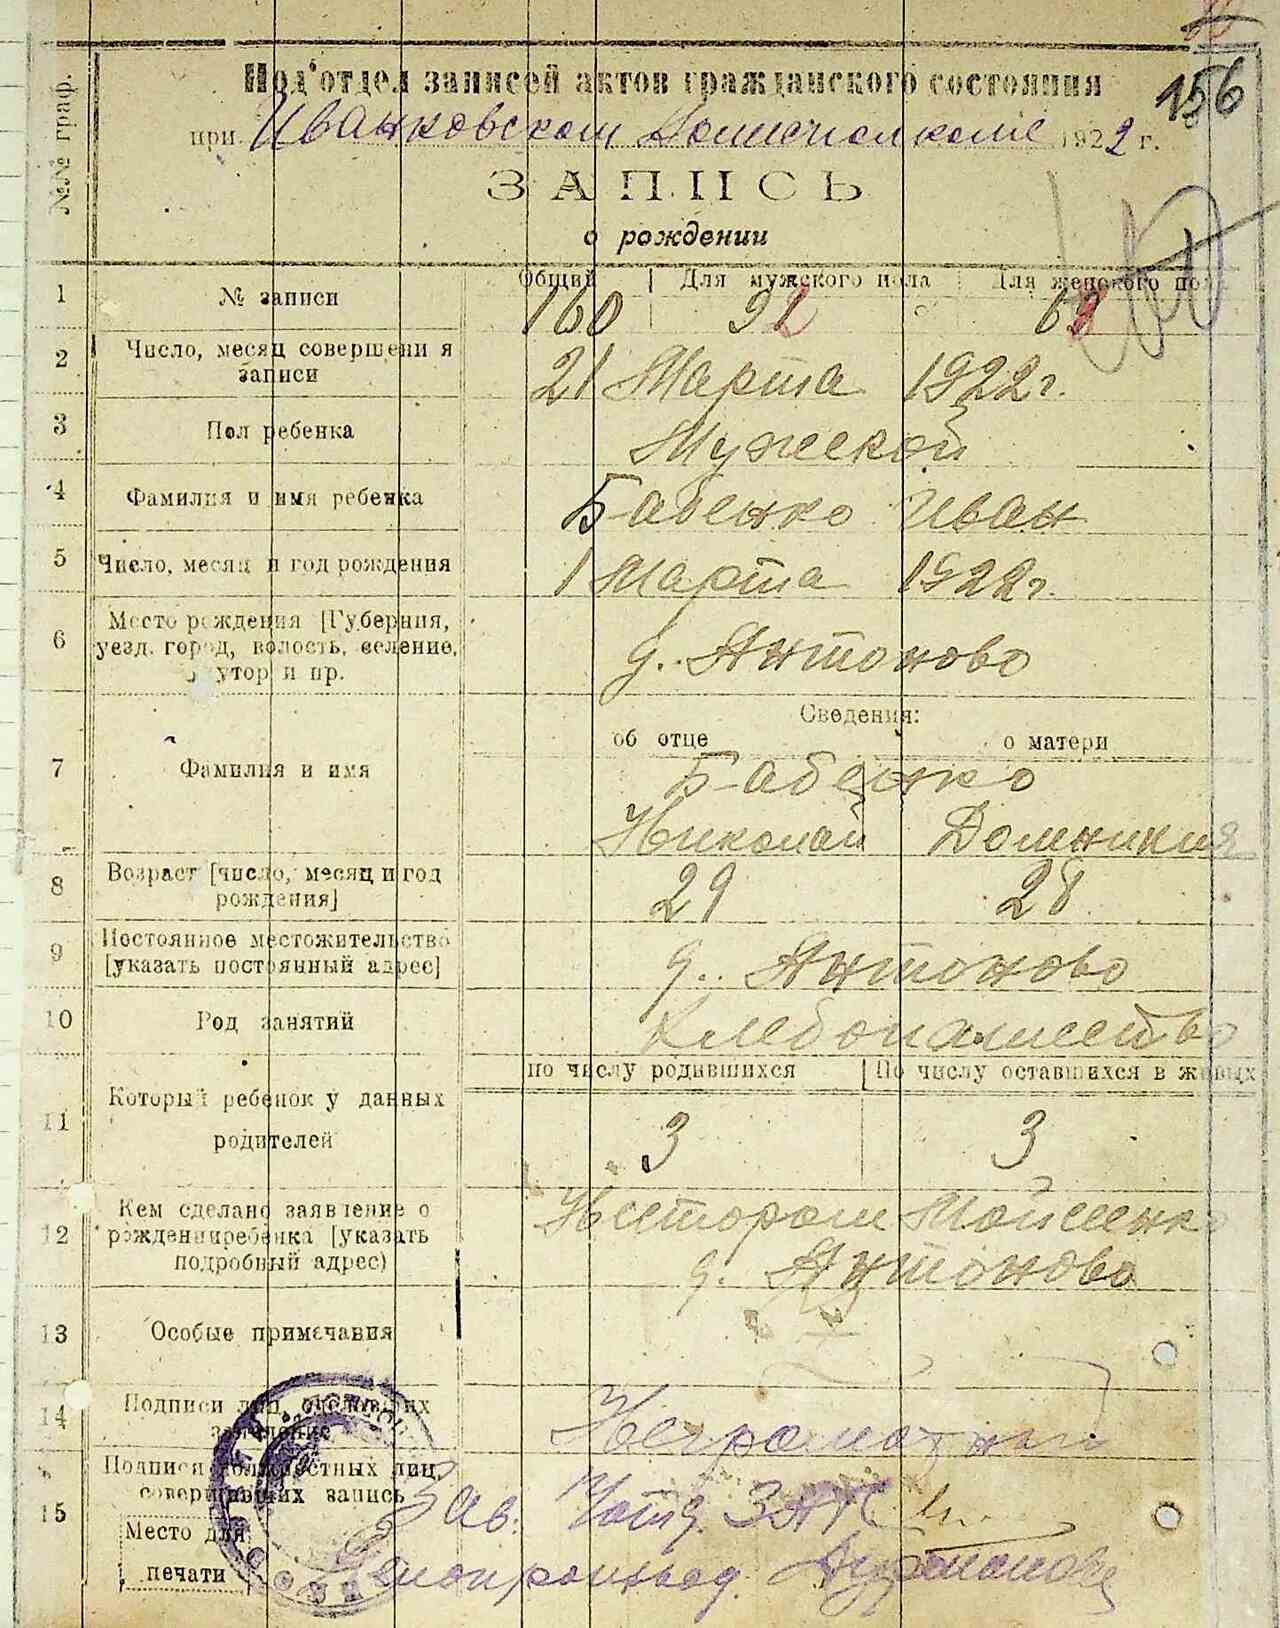 156
№№ граф.
Под'отдел записей актов гражданского состояния
при Иванковском Волисполкоме 1922 г.
ЗАПИСЬ
о рождении
Общий Для мужского пола Для женского пола
1 № записи 160 92
2 Число, месяц совершения записи 21 Марта 1922 г.
3 Пол ребенка Мужеской
4 Фамилия и имя ребенка Бабенко Иван
5 Число, месяц и год рождения 1 Марта 1922 г.
6 Место рождения [Губерния,
уезд, город, волость, селение, д. Антоново
хутор и пр.
Сведения:
об отце о матери
7 Фамилия и имя Бабенко
Николай Домникия
8 Возраст [число, месяц и год рождения] 29 28
9 Постоянное местожительство
[указать постоянный адрес] д. Антоново
10 Род занятий Хлебопашество
по числу родившихся По числу оставшихся в живых
11 Который ребенок у данных
родителей 3 3
12 Кем сделано заявление о Нестором Мойсеенко
рождении ребенка [указать
подробный адрес) д. Антоново
13 Особые примечания
14 Подписи лиц, сделавших
заявление Неграмотный
Подписи должностных лиц,
совершивших запись Зав.
15 Место для
печати Делопроизвод.